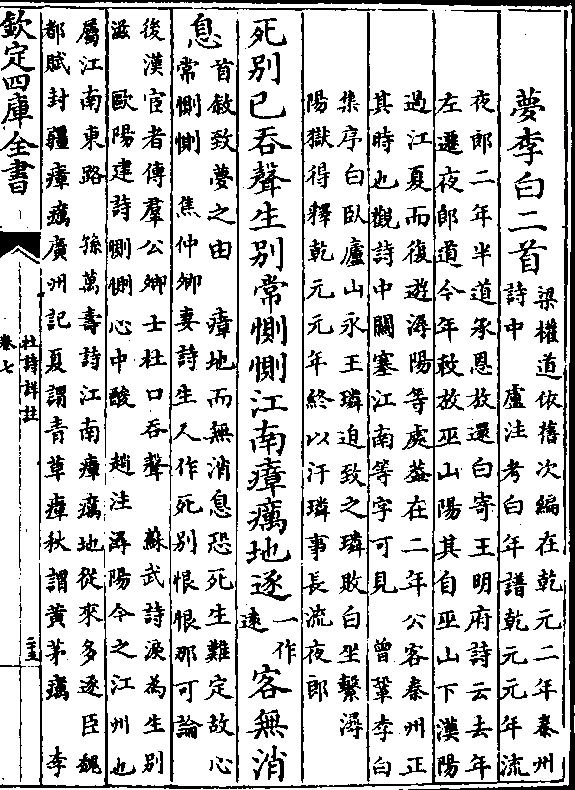 夢李白二首
梁權道依舊次編在乾元二年秦州
詩中　盧注考白年譜乾元元年流
夜郎二年半道承恩放還白寄王明府詩云去年
左遷夜郎道今年敕放巫山陽其自巫山下漢陽
過江夏而復遊潯陽等處蓋在二年公客秦州正
其時也觀詩中關塞江南等字可見　曾鞏李白
集序白臥廬山永王璘迫致之璘敗白坐繫潯
陽獄得釋乾元元年終以汙璘事長流夜郎
死别已吞聲生别常惻惻江南瘴癘地逐一作遠客無消
息
首敘致夢之由　瘴地而無消息恐死生難定故心
常惻惻　焦仲卿妻詩生人作死别恨恨那可論
後漢宦者傳羣公卿士杜口吞聲　蘇武詩淚為生别
滋　歐陽建詩惻惻心中酸　趙注潯陽今之江州也
屬江南東路　孫萬壽詩江南瘴癘地從來多逐臣魏
都賦封疆瘴癘廣州記夏謂青草瘴秋謂黄茅癘　李
欽定四庫全書
杜詩詳註
卷七